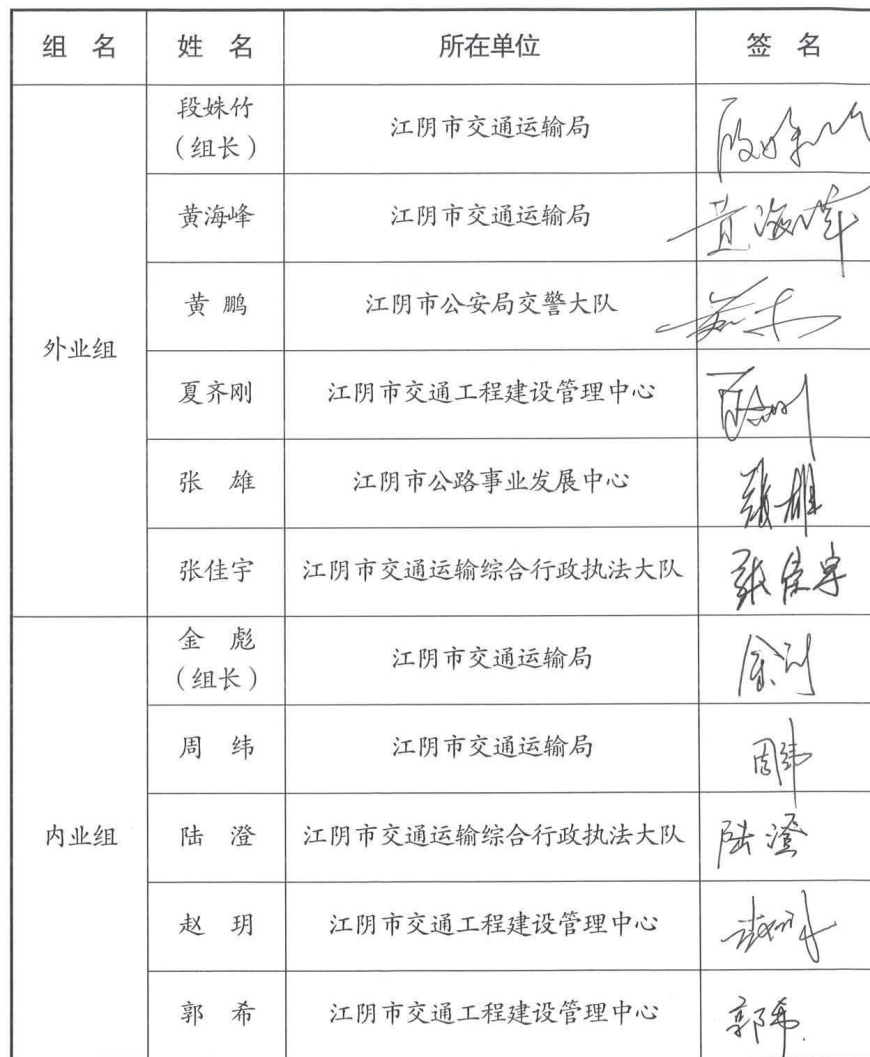 组 名 姓 名 所在单位 签 名
外业组
段姝竹
（组长）
江阴市交通运输局
黄海峰 江阴市交通运输局 黄海峰
黄 鹏 江阴市公安局交警大队
夏齐刚 江阴市交通工程建设管理中心
张 雄 江阴市公路事业发展中心 张雄
张佳宇 江阴市交通运输综合行政执法大队 张佳宇
内业组
金 彪
（组长）
江阴市交通运输局
周 纬 江阴市交通运输局 周纬
陆 澄 江阴市交通运输综合行政执法大队 陆澄
赵 玥 江阴市交通工程建设管理中心
郭 希 江阴市交通工程建设管理中心 郭希